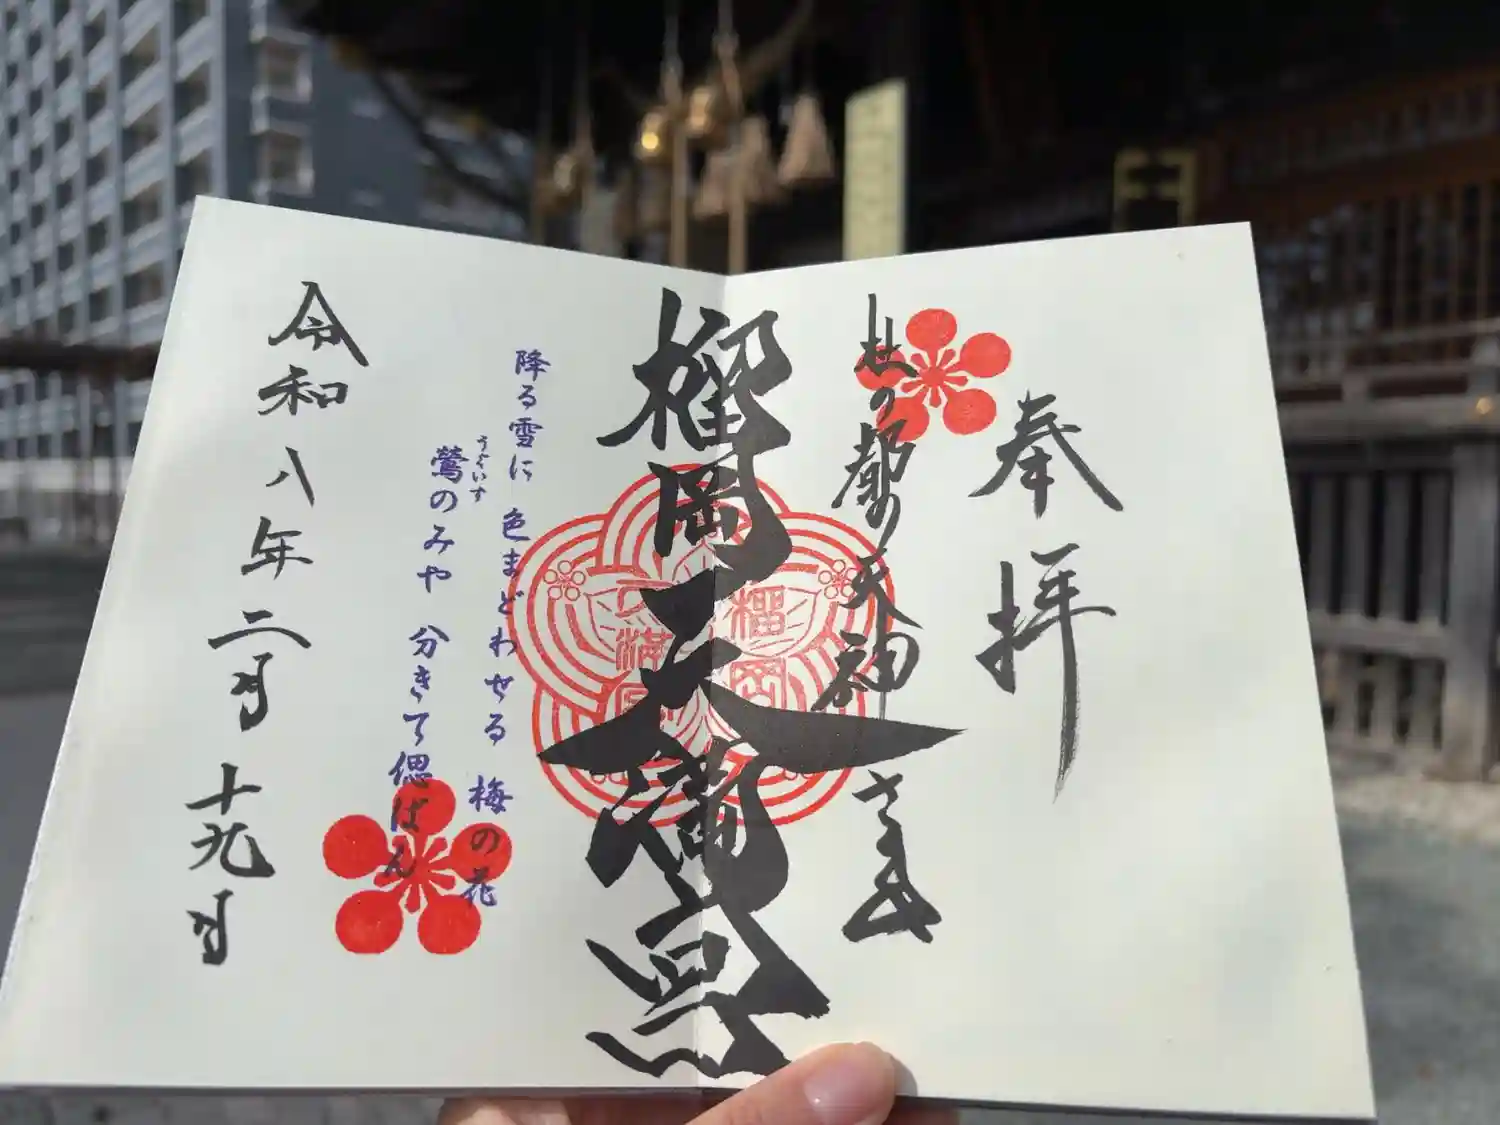 奉拝
杜の都の天神さま
榴岡天満宮
榴岡
天満宮
降る雪に 色まどわせる 梅の花
鶯のみや 分きて偲ばん
うぐいす
令和八年二月十九日